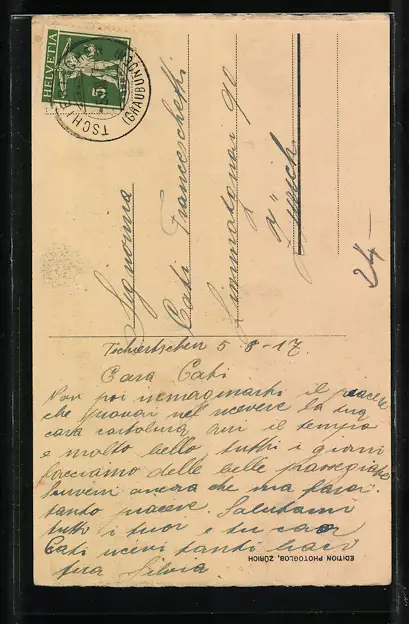 HELVETIA
5
TSCHIERTSCHEN
(GRAUBÜNDEN)
Signorina
Cati Franceschetti
Limmatquai 90
Zürich
24—
Tschiertschen 5-8-17.
Cara Cati
Non poi immaginarti il piacere
che provai nel ricevere la tua
cara cartolina, qui il tempo
e molto bello tutti i giorni
facciamo delle belle passegiate
Scrivimi ancora che ma farai
tanto piacere. Salutami
tutti i tuoi e tu cara
Cati ricevi tanti baci
tua Silvia.
EDITION PHOTOGLOB, ZÜRICH